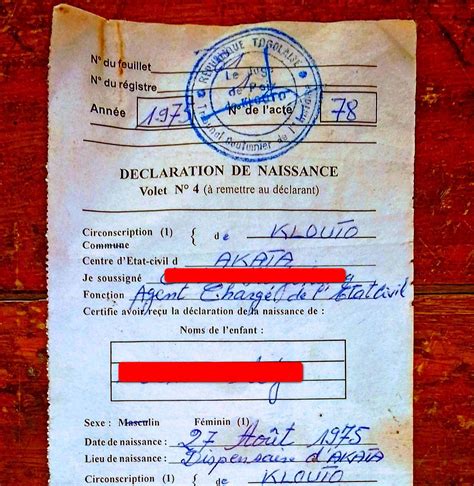 RÉPUBLIQUE TOGOLAISE
Le
de
KLOUTO
N° du feuillet
N° du registre
Année 1975 N° de l'acte 78
DECLARATION DE NAISSANCE
Volet N° 4 (à remettre au déclarant)
Circonscription (1) { de KLOUTO
Commune
Centre d'Etat-civil d AKATA
Je soussigné
Fonction Agent Chargé de l'Etat Civil
Certifie avoir reçu la déclaration de la naissance de :
Noms de l'enfant :
Sexe : Masculin Féminin (1)
Date de naissance : 27 Août 1975
Lieu de naissance : Dispensaire d'AKATA
Circonscription (1) { de KLOUTO